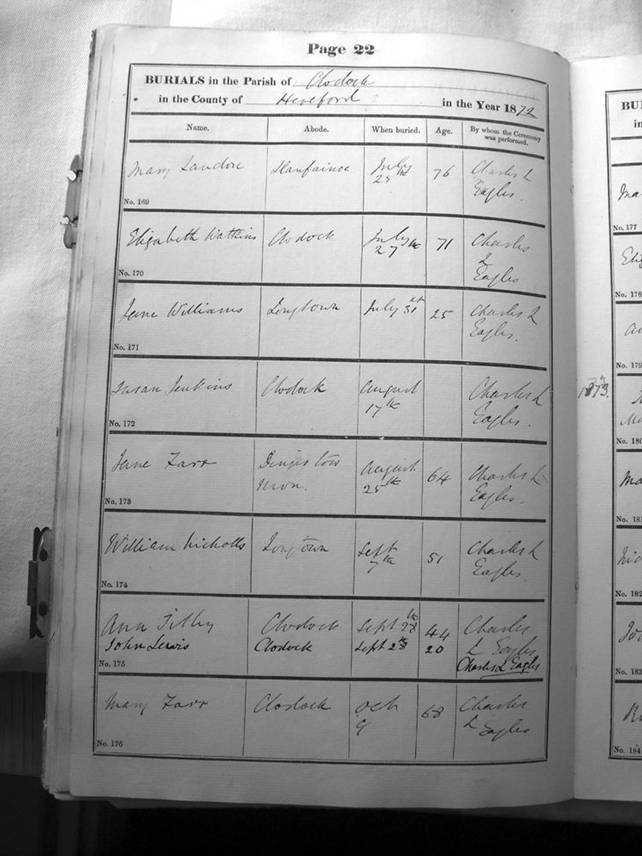 Page 22
BURIALS in the Parish of Clodock
in the County of Hereford in the Year 1872
Name. Abode. When buried. Age. By whom the Ceremony was performed.
Mary Landon Llanfainoe July 25th 76 Charles L
Eagles.
No. 169
Elizabeth Watkins Clodock July 27th 71 Charles
L
Eagles
No. 170
Jane Williams Longtown July 31st 25 Charles L
Eagles.
No. 171
Susan Jenkins Clodock August 17th Charles L
Eagles.
No. 172
Jane Farr Dingestow August 64 Charles L
Mon. 25th Eagles.
No. 173
William Nicholls Longtown Sept 7th 51 Charles L
Eagles.
No. 174
Ann Clodock Sept 44 Charles
John Lewis Clodock Sept 28 20 L Eagles
Charles L Eagles
No. 175
Mary Farr Clodock Oct 9 68 Charles
L Eagles
No. 176
BU
in
Ma
No. 177
Eli
No. 178
No. 179
1873.
No. 180
Ma
No. 181
No. 182
No. 183
No. 184